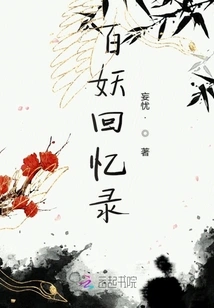 百妖回忆录
妄忧·
著
云起书院